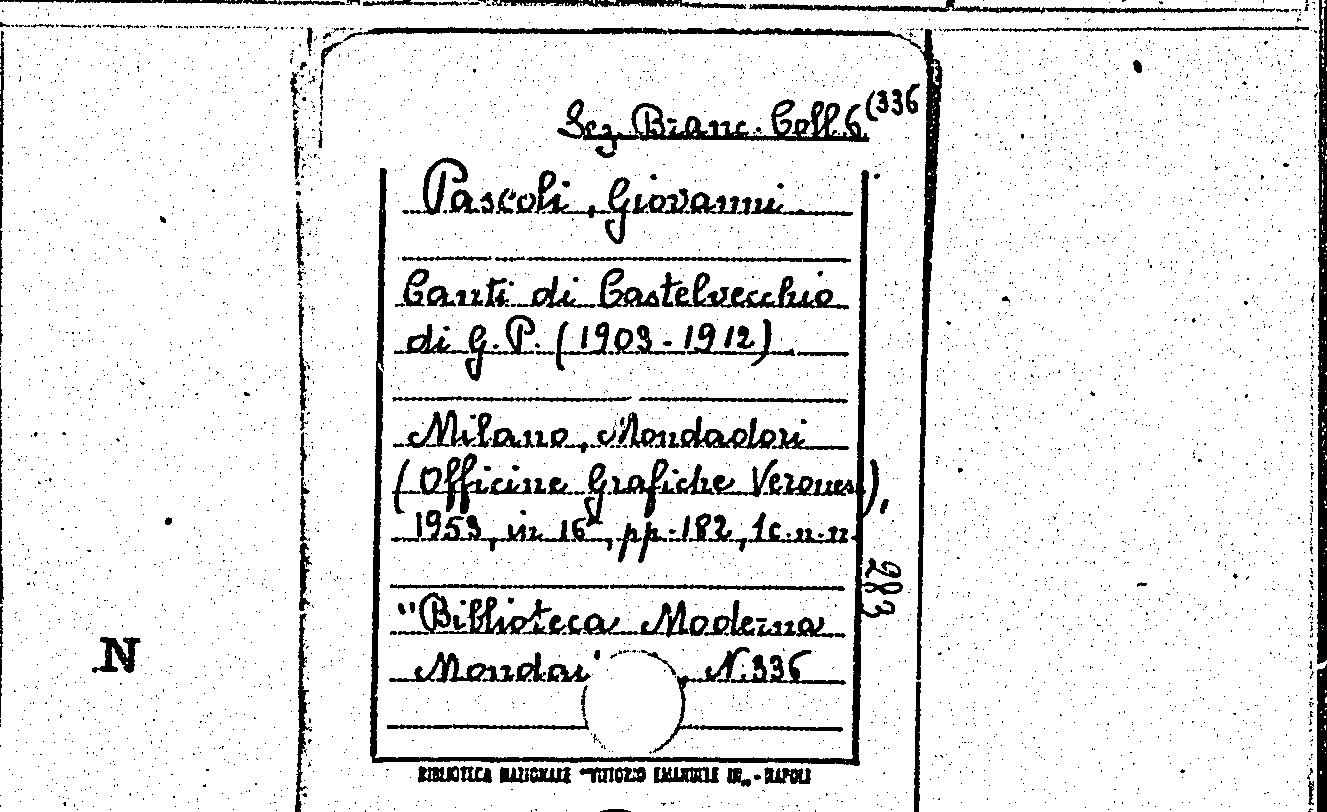 Sez. Branc. Coll. 6 (336
Pascoli, Giovanni
Canti di Castelvecchio
di G. P. (1903-1912)
Milano, Mondadori
(Officine Grafiche Verones.),
1953, in 16°, pp. 182, 1 c. n. n.
283
"Biblioteca Moderna
N. 336
N
BIBLIOTECA NAZIONALE "VITTORIO EMANUELE III„ - NAPOLI